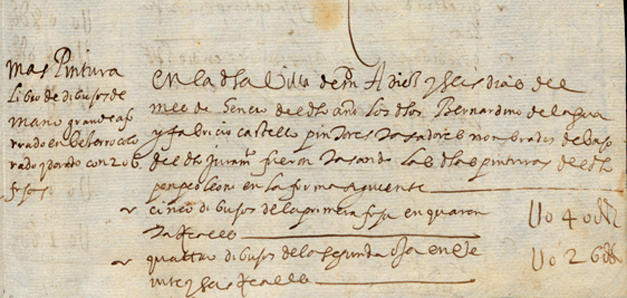 mas Pintura
libro de dibujos de
mano grande afo
rrado en beçerro colo
rado y dorado con 206
fojas
En la dha Villa de m^d A diez y seis dias del
mes de Henero del dho año los dhos Bernardino del agua
y fabricio castello pintores tasadores nonbrados debajo
del dho juram^o fueron tasando las dhas pinturas del dho
ponpeo leoni en la forma siguiente
cinco dibujos de la primera foja en quaren
ta Reales
Uo 4 odd
quattro dibujos de la segunda oja en Ve
inte y seis Reales
Uo 2 6dd